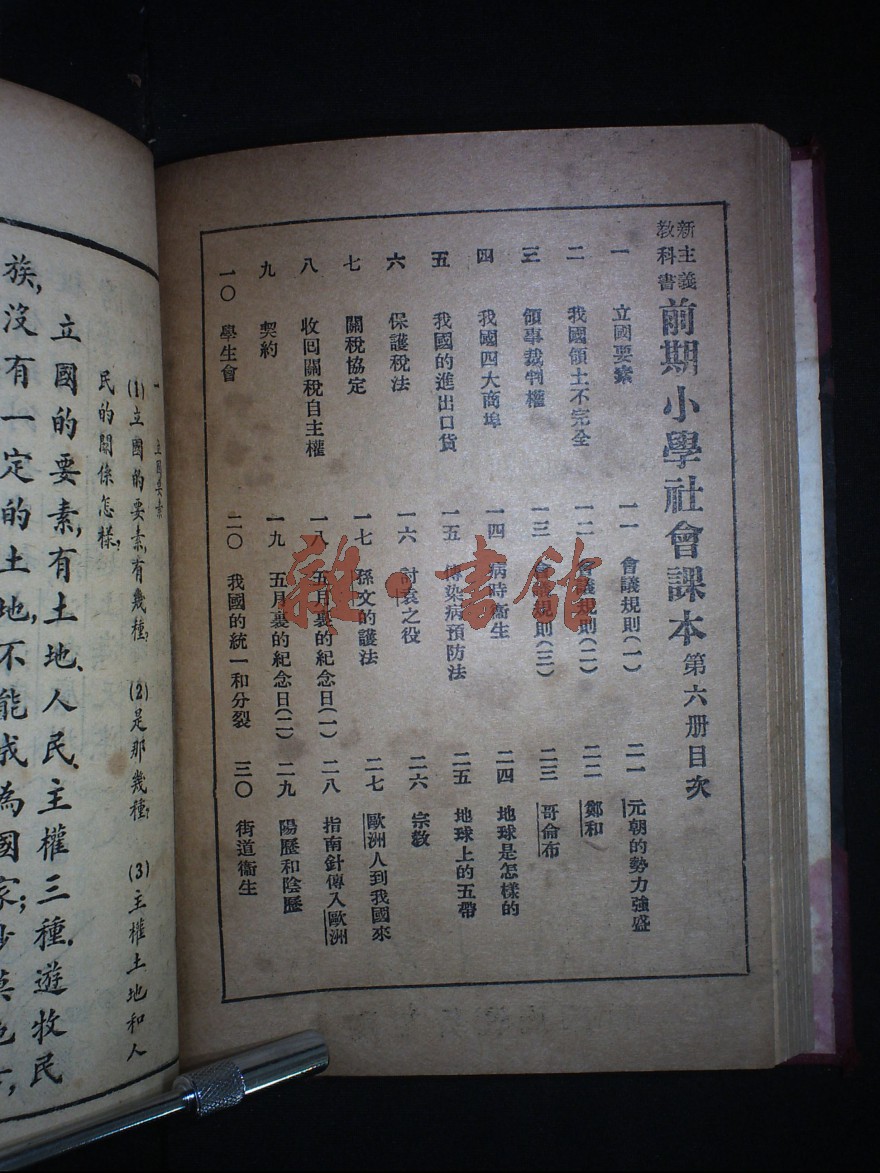 新主義教科書 前期小學社會課本 第六册目次
一 立國要素
二 我國領土不完全
三 領事裁判權
四 我國四大商埠
五 我國的進出口貨
六 保護稅法
七 關稅協定
八 收回關稅自主權
九 契約
一〇 學生會
一一 會議規則(一)
一二 會議規則(二)
一三 會議規則(三)
一四 病時衞生
一五 傳染病預防法
一六 討袁之役
一七 孫文的護法
一八 五月裏的紀念日(一)
一九 五月裏的紀念日(二)
二〇 我國的統一和分裂
二一 元朝的勢力強盛
二二 鄭和
二三 哥侖布
二四 地球是怎樣的
二五 地球上的五帶
二六 宗敎
二七 歐洲人到我國來
二八 指南針傳入歐洲
二九 陽歷和陰歷
三〇 街道衞生
一 立國要素
(1)立國的要素,有幾種, (2)是那幾種, (3)主權土地和人
民的關係怎樣,
立國的要素,有土地、人民、主權三種.遊牧民
族,沒有一定的土地,不能成為國家;
雜·書館